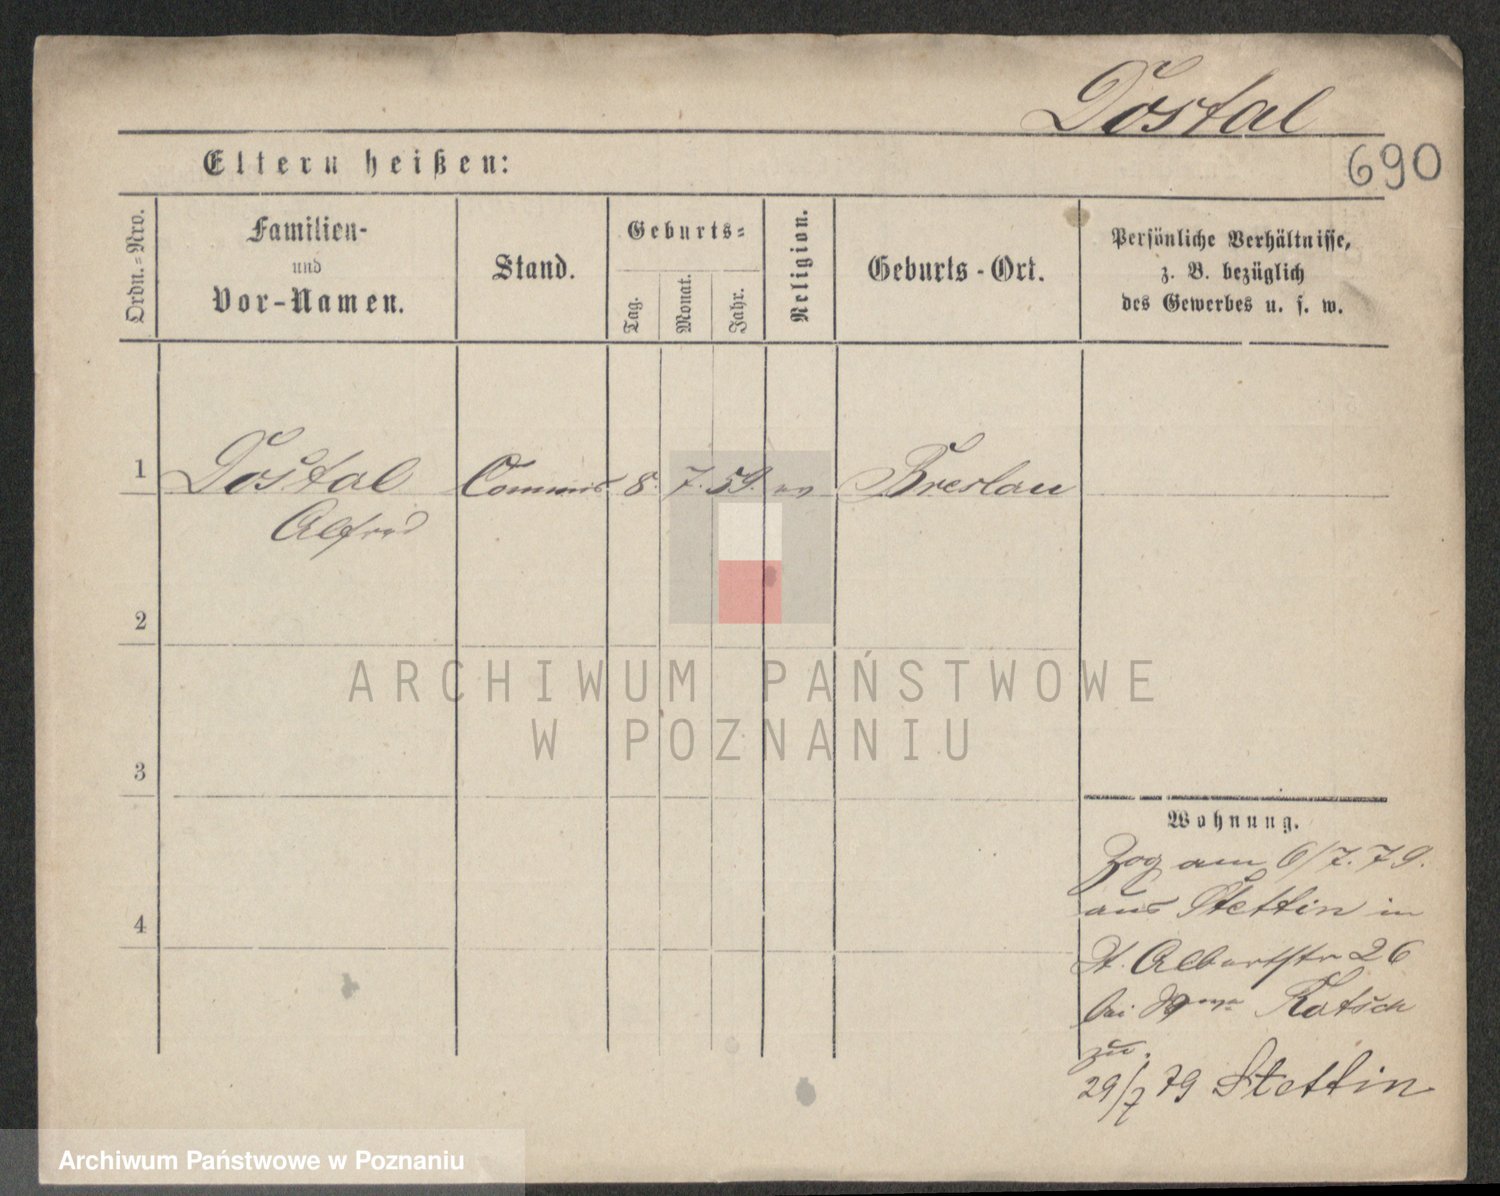 Dostal
690
Eltern heißen:
Ordn.=Nro.
Familien-
und
Vor-Namen.
Stand.
Geburts=
Tag.
Monat.
Jahr.
Religion.
Geburts-Ort.
Persönliche Verhältnisse,
z. B. bezüglich
des Gewerbes u. s. w.
1
Dostal
Alfred
Commis
8.
7.
59.
ev
Breslau
2
3
4
Wohnung.
Zog am 6/7.79.
aus Stettin in
St. Albertstr 26
bei Katsch
zu.
29/7 79 Stettin
ARCHIWUM PAŃSTWOWE
W POZNANIU
Archiwum Państwowe w Poznaniu